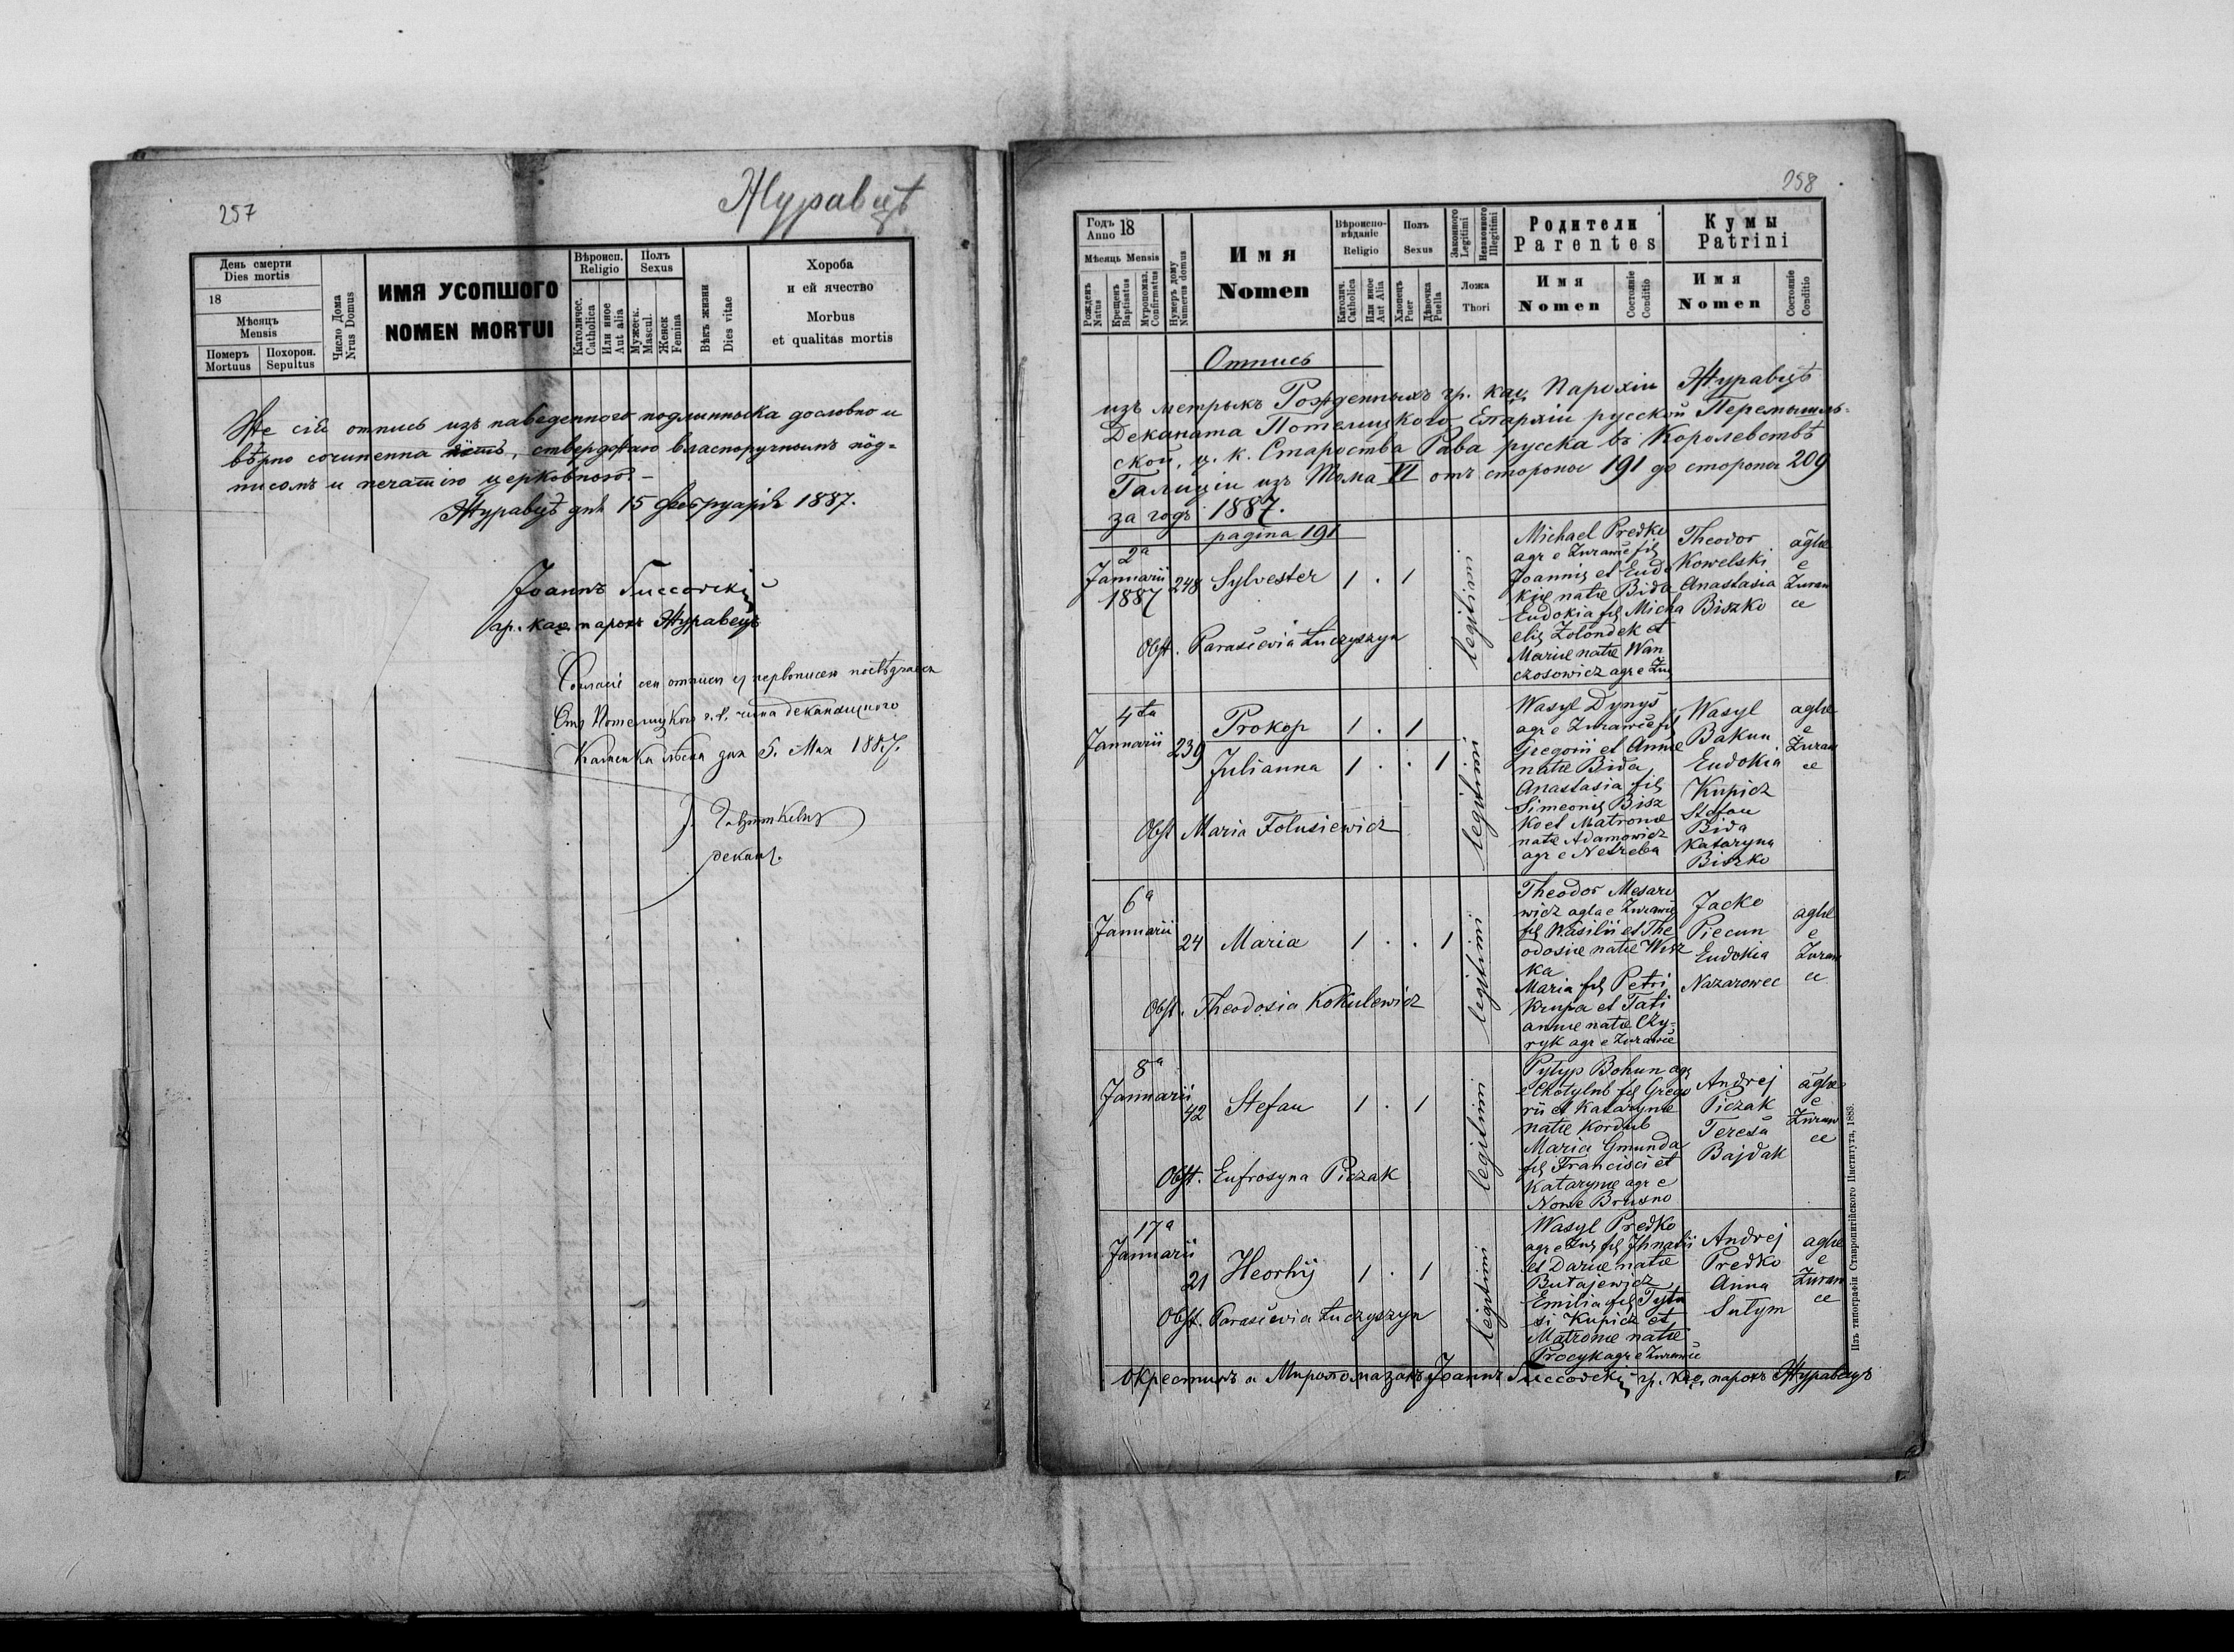 257
Журавцѣ
День смерти
Dies mortis
18
Мѣсяць
Mensis
Померъ
Mortuus
Похорон.
Sepultus
Число Дома
Nrus Domus
ИМЯ УСОПШОГО
NOMEN MORTUI
Вѣроисп.
Religio
Католичес.
Catholica
Или иное
Aut alia
Полъ
Sexus
Мужеск.
Mascul.
Женск
Femina
Вѣкъ жизни
Dies vitae
Хороба
и ей ячество
Morbus
et qualitas mortis
Же сій отпись изъ наведенного подлинника дословно и
вѣрно сочиненна есть, ствердѣаю власноручнымъ под-
писомъ и печатію церковною –
Журавцѣ дня 15 Фебруарія 1887.
Іоаннъ
гр. кат. парохъ Журавець
сей отписи
Отъ чина деканального
Каменка дня 5. Мая 1887.
декан.
258
Годъ
Anno 18
Мѣсяць Mensis
Рожденъ
Natus
Крещенъ
Baptisatus
Мтропомаз.
Confirmatus
Нумеръ дому
Numerus domus
Имя
Nomen
Вѣроиспо-
вѣданіе
Religio
Католич.
Catholica
Или иное
Aut Alia
Полъ
Sexus
Хлопець
Puer
Дѣвочка
Puella
Законного
Legitimi
Незаконного
Illegitimi
Ложа
Thori
Родители
Parentes
Имя
Nomen
Состояніе
Conditio
Кумы
Patrini
Имя
Nomen
Состояніе
Conditio
Отпись
изъ метрыкъ Рожденныхъ гр. кат. Парохіи Журавцѣ
Деканата Потелицкого Епархіи русской Перемышль-
ской, ц. к. Староства Рава русска въ Королевствѣ
Галиціи изъ Тома VI отъ стороны 191 до стороны 209
за годъ 1887.
pagina 191
2a
Januarii
1887
248 Sylvester 1 . 1
legitimi
Michael Predko
agr e Zurawce fil
Joannis et Eudo
kiæ natæ Bida
Eudokia fil Micha
elis Zolondek et
Mariæ natæ Wan
czosowicz agr e Zur
Theodor
Kowelski
Anastasia
Biszko
aglæ
e
Zuraw
ce
Obst. Parascevia Łuczyszyn
4ta
Januarii
239
Prokop 1 . 1
Julianna 1 . . 1
legitimi
Wasyl Dynys
agr e Zurawce fil
Gregorii et Annæ
natæ Bida
Anastasia fil
Simeonis Bisz
ko et Matronæ
natæ Adamowicz
agr e Netreba
Wasyl
Bakun
Eudokia
Kupicz
Stefan
Bida
Kataryna
Biszko
aglæ
e
Zuraw
ce
Obst Maria Folusiewicz
6a
Januarii
24 Maria 1 . . 1
legitimi
Theodor Mesare
wicz agla e Zurawce
fil Wasilii et The
odosiæ natæ Wisz
ka
Maria fil Petri
Krupa et Tati
annæ natæ Czy-
ryk agr e Zurawce
Jacko
Piecun
Eudokia
Nazarowec
aglæ
e
Zuraw
ce
Obst. Theodosia Kokulewicz
8a
Januarii
42 Stefan 1 . 1
legitimi
Pylyp Bohun agr
e Chotylub fil Grego
rii et Katarynæ
natæ Kordub
Maria Gmunda
fil Francisci et
Katarynæ agr e
Nowe Brusno
Andrej
Piczak
Teresa
Bajdak
aglæ
e
Zuraw
ce
Obst. Eufrosyna Piczak
17a
Januarii
21 Heorhij 1 . 1
legitimi
Wasyl Predko
agr e Zur fil Ihnatii
et Dariæ natæ
Butajewicz
Emilia fil Tyta
si Kupicz et
Matronæ natæ
Procyk agr e Zurawce
Andrej
Predko
Anna
Sutym
aglæ
e
Zuraw
ce
Obst. Parascevia Łuczyszyn
Окрестилъ и Миропомазалъ Іоаннъ гр. кат. парохъ Журавець
Изъ типографіи Ставропигійского Института, 1883.